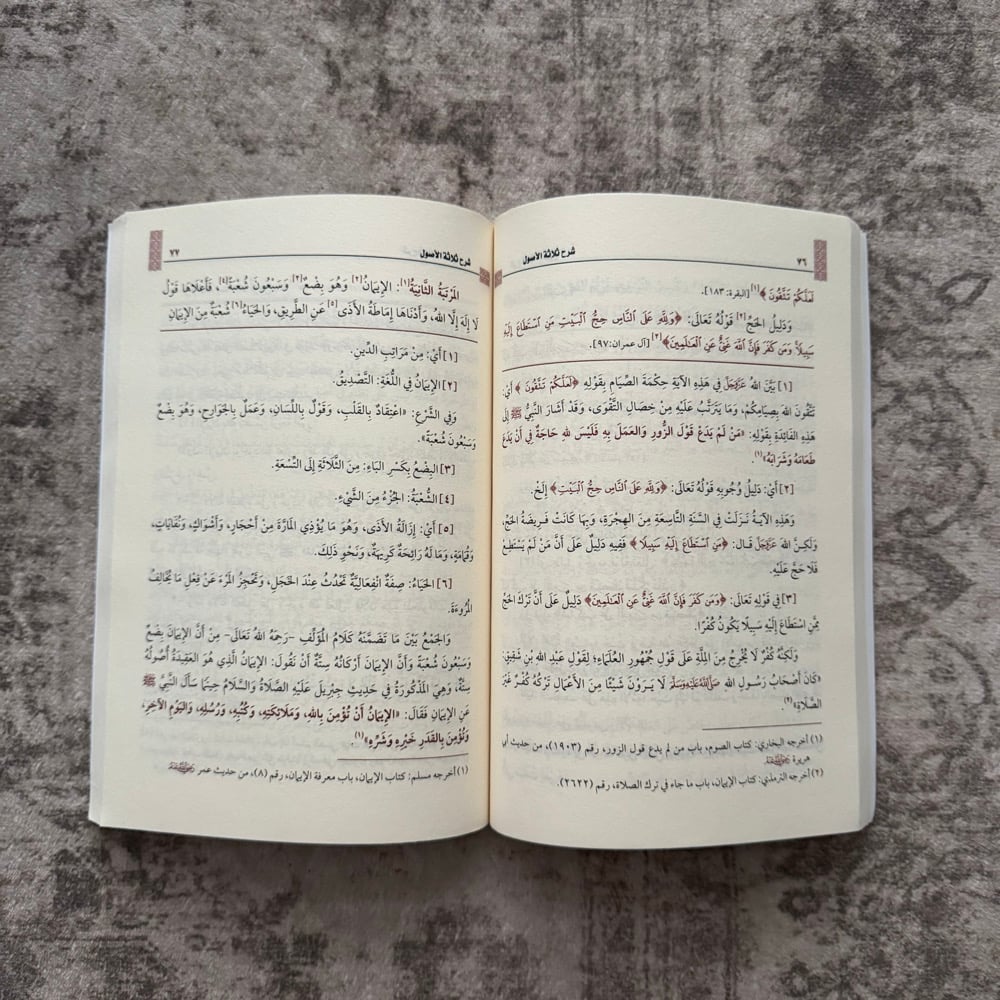 ٧٦
شرح ثلاثة الأصول
لَعَلَّكُمْ تَتَّقُونَ ﴾[١] [البقرة: ١٨٣].
وَدَلِيلُ الحَجِّ[٢] قَوْلُهُ تَعَالَى: ﴿وَلِلَّهِ عَلَى ٱلنَّاسِ حِجُّ ٱلْبَيْتِ مَنِ ٱسْتَطَاعَ إِلَيْهِ
سَبِيلًا وَمَن كَفَرَ فَإِنَّ ٱللَّهَ غَنِىٌّ عَنِ ٱلْعَـٰلَمِينَ﴾[٣] [آل عمران: ٩٧].
[١] بَيَّنَ اللهُ عَزَّوَجَلَّ فِي هَذِهِ الآيَةِ حِكْمَةَ الصِّيَامِ بِقَوْلِهِ ﴿لَعَلَّكُمْ تَتَّقُونَ ﴾ أَيْ:
تَتَّقُونَ اللهَ بِصِيَامِكُمْ، وَمَا يَتَرَتَّبُ عَلَيْهِ مِنْ خِصَالِ التَّقْوَى، وَقَدْ أَشَارَ النَّبِيُّ ﷺ إِلَى
هَذِهِ الفَائِدَةِ بِقَوْلِهِ: «مَنْ لَمْ يَدَعْ قَوْلَ الزُّورِ وَالعَمَلَ بِهِ فَلَيْسَ للهِ حَاجَةٌ فِي أَنْ يَدَعَ
طَعَامَهُ وَشَرَابَهُ»(١).
[٢] أَيْ: دَلِيلُ وُجُوبِهِ قَوْلُهُ تَعَالَى: ﴿وَلِلَّهِ عَلَى ٱلنَّاسِ حِجُّ ٱلْبَيْتِ﴾ إِلَخْ.
وَهَذِهِ الآيَةُ نَزَلَتْ فِي السَّنَةِ التَّاسِعَةِ مِنَ الهِجْرَةِ، وَبِهَا كَانَتْ فَرِيضَةُ الحَجِّ،
وَلَكِنَّ اللهَ عَزَّوَجَلَّ قَالَ: ﴿مَنِ ٱسْتَطَاعَ إِلَيْهِ سَبِيلًا ﴾ فَفِيهِ دَلِيلٌ عَلَى أَنَّ مَنْ لَمْ يَسْتَطِعْ
فَلَا حَجَّ عَلَيْهِ.
[٣] فِي قَوْلِهِ تَعَالَى: ﴿وَمَن كَفَرَ فَإِنَّ ٱللَّهَ غَنِىٌّ عَنِ ٱلْعَـٰلَمِينَ﴾ دَلِيلٌ عَلَى أَنَّ تَرْكَ الحَجِّ
مِمَّنِ اسْتَطَاعَ إِلَيْهِ سَبِيلًا يَكُونُ كُفْرًا.
وَلَكِنَّهُ كُفْرٌ لَا يُخْرِجُ مِنَ المِلَّةِ عَلَى قَوْلِ جُمْهُورِ العُلَمَاءِ؛ لِقَوْلِ عَبْدِ اللهِ بْنِ شَقِيقٍ:
«كَانَ أَصْحَابُ رَسُولِ اللهِ صَلَّى اللَّهُ عَلَيْهِ وَسَلَّمَ لَا يَرَوْنَ شَيْئًا مِنَ الأَعْمَالِ تَرْكُهُ كُفْرٌ غَيْرَ
الصَّلَاةِ»(٢).
(١) أخرجه البخاري: كتاب الصوم، باب من لم يدع قول الزور، رقم (١٩٠٣)، من حديث أبي
هريرة رَضِيَ اللَّهُ عَنْهُ.
(٢) أخرجه الترمذي: كتاب الإيمان، باب ما جاء في ترك الصلاة، رقم (٢٦٢٢).
شرح ثلاثة الأصول
٧٧
المَرْتَبَةُ الثَّانِيَةُ[١]: الإِيمَانُ[٢] وَهُوَ بِضْعٌ[٣] وَسَبْعُونَ شُعْبَةً[٤]، فَأَعْلَاهَا قَوْلُ
لَا إِلَهَ إِلَّا اللهُ، وَأَدْنَاهَا إِمَاطَةُ الأَذَى[٥] عَنِ الطَّرِيقِ، وَالحَيَاءُ[٦] شُعْبَةٌ مِنَ الإِيمَانِ
[١] أَيْ: مِنْ مَرَاتِبِ الدِّينِ.
[٢] الإِيمَانُ فِي اللُّغَةِ: التَّصْدِيقُ.
وَفِي الشَّرْعِ: «اعْتِقَادٌ بِالقَلْبِ، وَقَوْلٌ بِاللِّسَانِ، وَعَمَلٌ بِالجَوَارِحِ، وَهُوَ بِضْعٌ
وَسَبْعُونَ شُعْبَةً».
[٣] البِضْعُ بِكَسْرِ البَاءِ: مِنَ الثَّلَاثَةِ إِلَى التِّسْعَةِ.
[٤] الشُّعْبَةُ: الجُزْءُ مِنَ الشَّيْءِ.
[٥] أَيْ: إِزَالَةُ الأَذَى، وَهُوَ مَا يُؤْذِي المَارَّةَ مِنْ أَحْجَارٍ، وَأَشْوَاكٍ، وَنُفَايَاتٍ،
وَقُمَامَةٍ، وَمَا لَهُ رَائِحَةٌ كَرِيهَةٌ، وَنَحْوِ ذَلِكَ.
[٦] الحَيَاءُ: صِفَةٌ انْفِعَالِيَّةٌ تَحْدُثُ عِنْدَ الخَجَلِ، وَتَحْجِزُ المَرْءَ عَنْ فِعْلِ مَا يُخَالِفُ
المُرُوءَةَ.
وَالجَمْعُ بَيْنَ مَا تَضَمَّنَهُ كَلَامُ المُؤَلِّفِ -رَحِمَهُ اللهُ تَعَالَى- مِنْ أَنَّ الإِيمَانَ بِضْعٌ
وَسَبْعُونَ شُعْبَةً وَأَنَّ الإِيمَانَ أَرْكَانُهُ سِتَّةٌ أَنْ نَقُولَ: الإِيمَانُ الَّذِي هُوَ العَقِيدَةُ أُصُولُهُ
سِتَّةٌ، وَهِيَ المَذْكُورَةُ فِي حَدِيثِ جِبْرِيلَ عَلَيْهِ الصَّلَاةُ وَالسَّلَامُ حِينَمَا سَأَلَ النَّبِيَّ ﷺ
عَنِ الإِيمَانِ فَقَالَ: «الإِيمَانُ أَنْ تُؤْمِنَ بِاللهِ، وَمَلَائِكَتِهِ، وَكُتُبِهِ، وَرُسُلِهِ، وَاليَوْمِ الآخِرِ،
وَتُؤْمِنَ بِالقَدَرِ خَيْرِهِ وَشَرِّهِ»(١)
(١) أخرجه مسلم: كتاب الإيمان، باب معرفة الإيمان، رقم (٨)، من حديث عمر رَضِيَ اللَّهُ عَنْهُ.